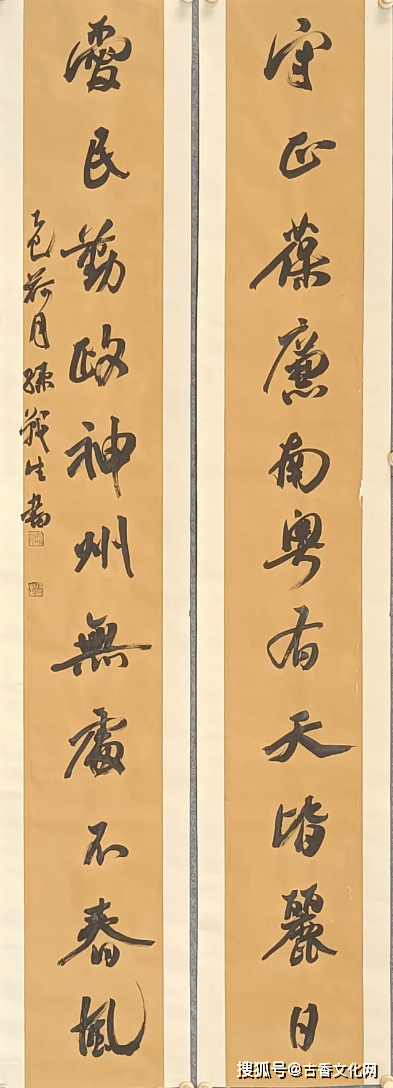 守正葆廉南粵有天皆麗日
愛民勤政神州無處不春風
乙巳荷月生書
搜狐号@古香文化网